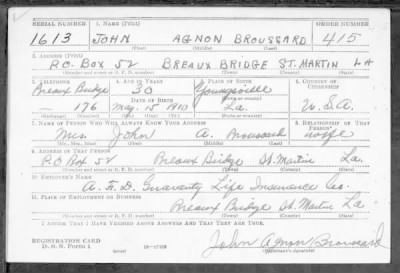 SERIAL NUMBER 1. NAME (Print) ORDER NUMBER
1613 JOHN AGNON BROUSSARD 415
(First) (Middle) (Last)
2. ADDRESS (Print)
P.O. BOX 52 BREAUX BRIDGE ST. MARTIN LA
(Number and street or R. F. D. number) (Town) (County) (State)
3. TELEPHONE 4. AGE IN YEARS 5. PLACE OF BIRTH 6. COUNTRY OF CITIZENSHIP
Breaux Bridge 30 Youngsville
DATE OF BIRTH (Town or county)
— 176 May. 15 1910 La. U.S.A.
(Exchange) (Number) (Mo.) (Day) (Yr.) (State or country)
7. NAME OF PERSON WHO WILL ALWAYS KNOW YOUR ADDRESS 8. RELATIONSHIP OF THAT PERSON
Mrs. John A. Broussard wife
(Mr., Mrs., Miss) (First) (Middle) (Last)
9. ADDRESS OF THAT PERSON
P.O. Box 52 Breaux Bridge St. Martin La.
(Number and street or R. F. D. number) (Town) (County) (State)
10. EMPLOYER'S NAME
Life Insurance Co.
11. PLACE OF EMPLOYMENT OR BUSINESS
Breaux Bridge St. Martin La.
(Number and street or R. F. D. number) (Town) (County) (State)
I AFFIRM THAT I HAVE VERIFIED ABOVE ANSWERS AND THAT THEY ARE TRUE.
REGISTRATION CARD
D. S. S. FORM 1 (over) 16—17105
John Agnon Broussard
(Registrant's signature)